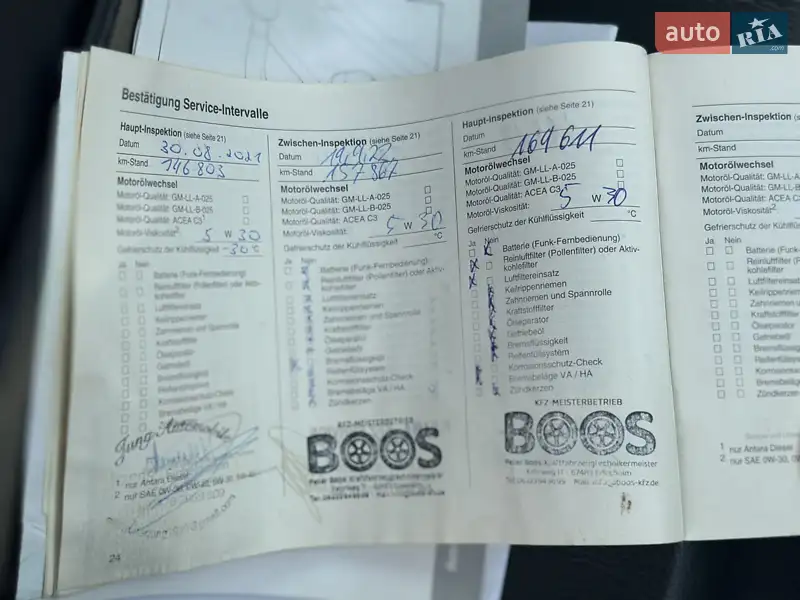 auto RIA .com
Bestätigung Service-Intervalle
Haupt-Inspektion (siehe Seite 21)
Datum 30.08.2021
km-Stand 146803
Motorölwechsel
Motoröl-Qualität: GM-LL-A-025
Motoröl-Qualität: GM-LL-B-025
Motoröl-Qualität: ACEA C3¹
Motoröl-Viskosität² 5 W 30
Gefrierschutz der Kühlflüssigkeit -30°C
Ja Nein
Batterie (Funk-Fernbedienung)
Reinluftfilter (Pollenfilter) oder Aktiv-
kohlefilter
Luftfiltereinsatz
Keilrippenriemen
Zahnriemen und Spannrolle
Kraftstofffilter
Ölseparator
Getriebeöl
Bremsflüssigkeit
Reifenfüllsystem
Korrosionsschutz-Check
Bremsbeläge VA / HA
Zündkerzen
1 nur Antara Diesel
24
Zwischen-Inspektion (siehe Seite 21)
Datum 19.9.22
km-Stand 157867
Motorölwechsel
Motoröl-Qualität: GM-LL-A-025
Motoröl-Qualität: GM-LL-B-025
Motoröl-Qualität: ACEA C3
Motoröl-Viskosität 5 W 30
Gefrierschutz der Kühlflüssigkeit °C
Ja Nein
Batterie (Funk-Fernbedienung)
Reinluftfilter (Pollenfilter) oder Aktiv-
kohlefilter
Luftfiltereinsatz
Keilrippenriemen
Zahnriemen und Spannrolle
Kraftstofffilter
Ölseparator
Getriebeöl
Bremsflüssigkeit
Reifenfüllsystem
Korrosionsschutz-Check
Bremsbeläge VA / HA
Zündkerzen
KFZ-MEISTERBETRIEB
BOOS
Haupt-Inspektion (siehe Seite 21)
Datum
km-Stand 169611
Motorölwechsel
Motoröl-Qualität: GM-LL-A-025
Motoröl-Qualität: GM-LL-B-025
Motoröl-Qualität: ACEA C3
Motoröl-Viskosität: 5 W 30
Gefrierschutz der Kühlflüssigkeit °C
Ja Nein
Batterie (Funk-Fernbedienung)
Reinluftfilter (Pollenfilter) oder Aktiv-
kohlefilter
Luftfiltereinsatz
Keilrippenriemen
Zahnriemen und Spannrolle
Kraftstofffilter
Ölseparator
Getriebeöl
Bremsflüssigkeit
Reifenfüllsystem
Korrosionsschutz-Check
Bremsbeläge VA / HA
Zündkerzen
KFZ-MEISTERBETRIEB
BOOS
Peter Boos Kraftfahrzeugtechnikermeister
Zwischen-Inspektion
Datum
km-Stand
Motorölwechsel
Motoröl-Qualität: GM-LL-A-
Motoröl-Qualität: GM-LL-B-
Motoröl-Qualität: ACEA C
Motoröl-Viskosität²
Gefrierschutz der Kühlflüss
Ja Nein
Batterie (Funk-
Reinluftfilter (
kohlefilter
Luftfiltereinsatz
Keilrippenriemen
Zahnriemen und
Kraftstofffilter
Ölseparator
Getriebeöl
Bremsflüssigk
Reifenfüllsyst
Korrosionssch
Bremsbeläge V
Zündkerzen
1 nur Antara Diesel
2 nur SAE 0W-30, 0W-